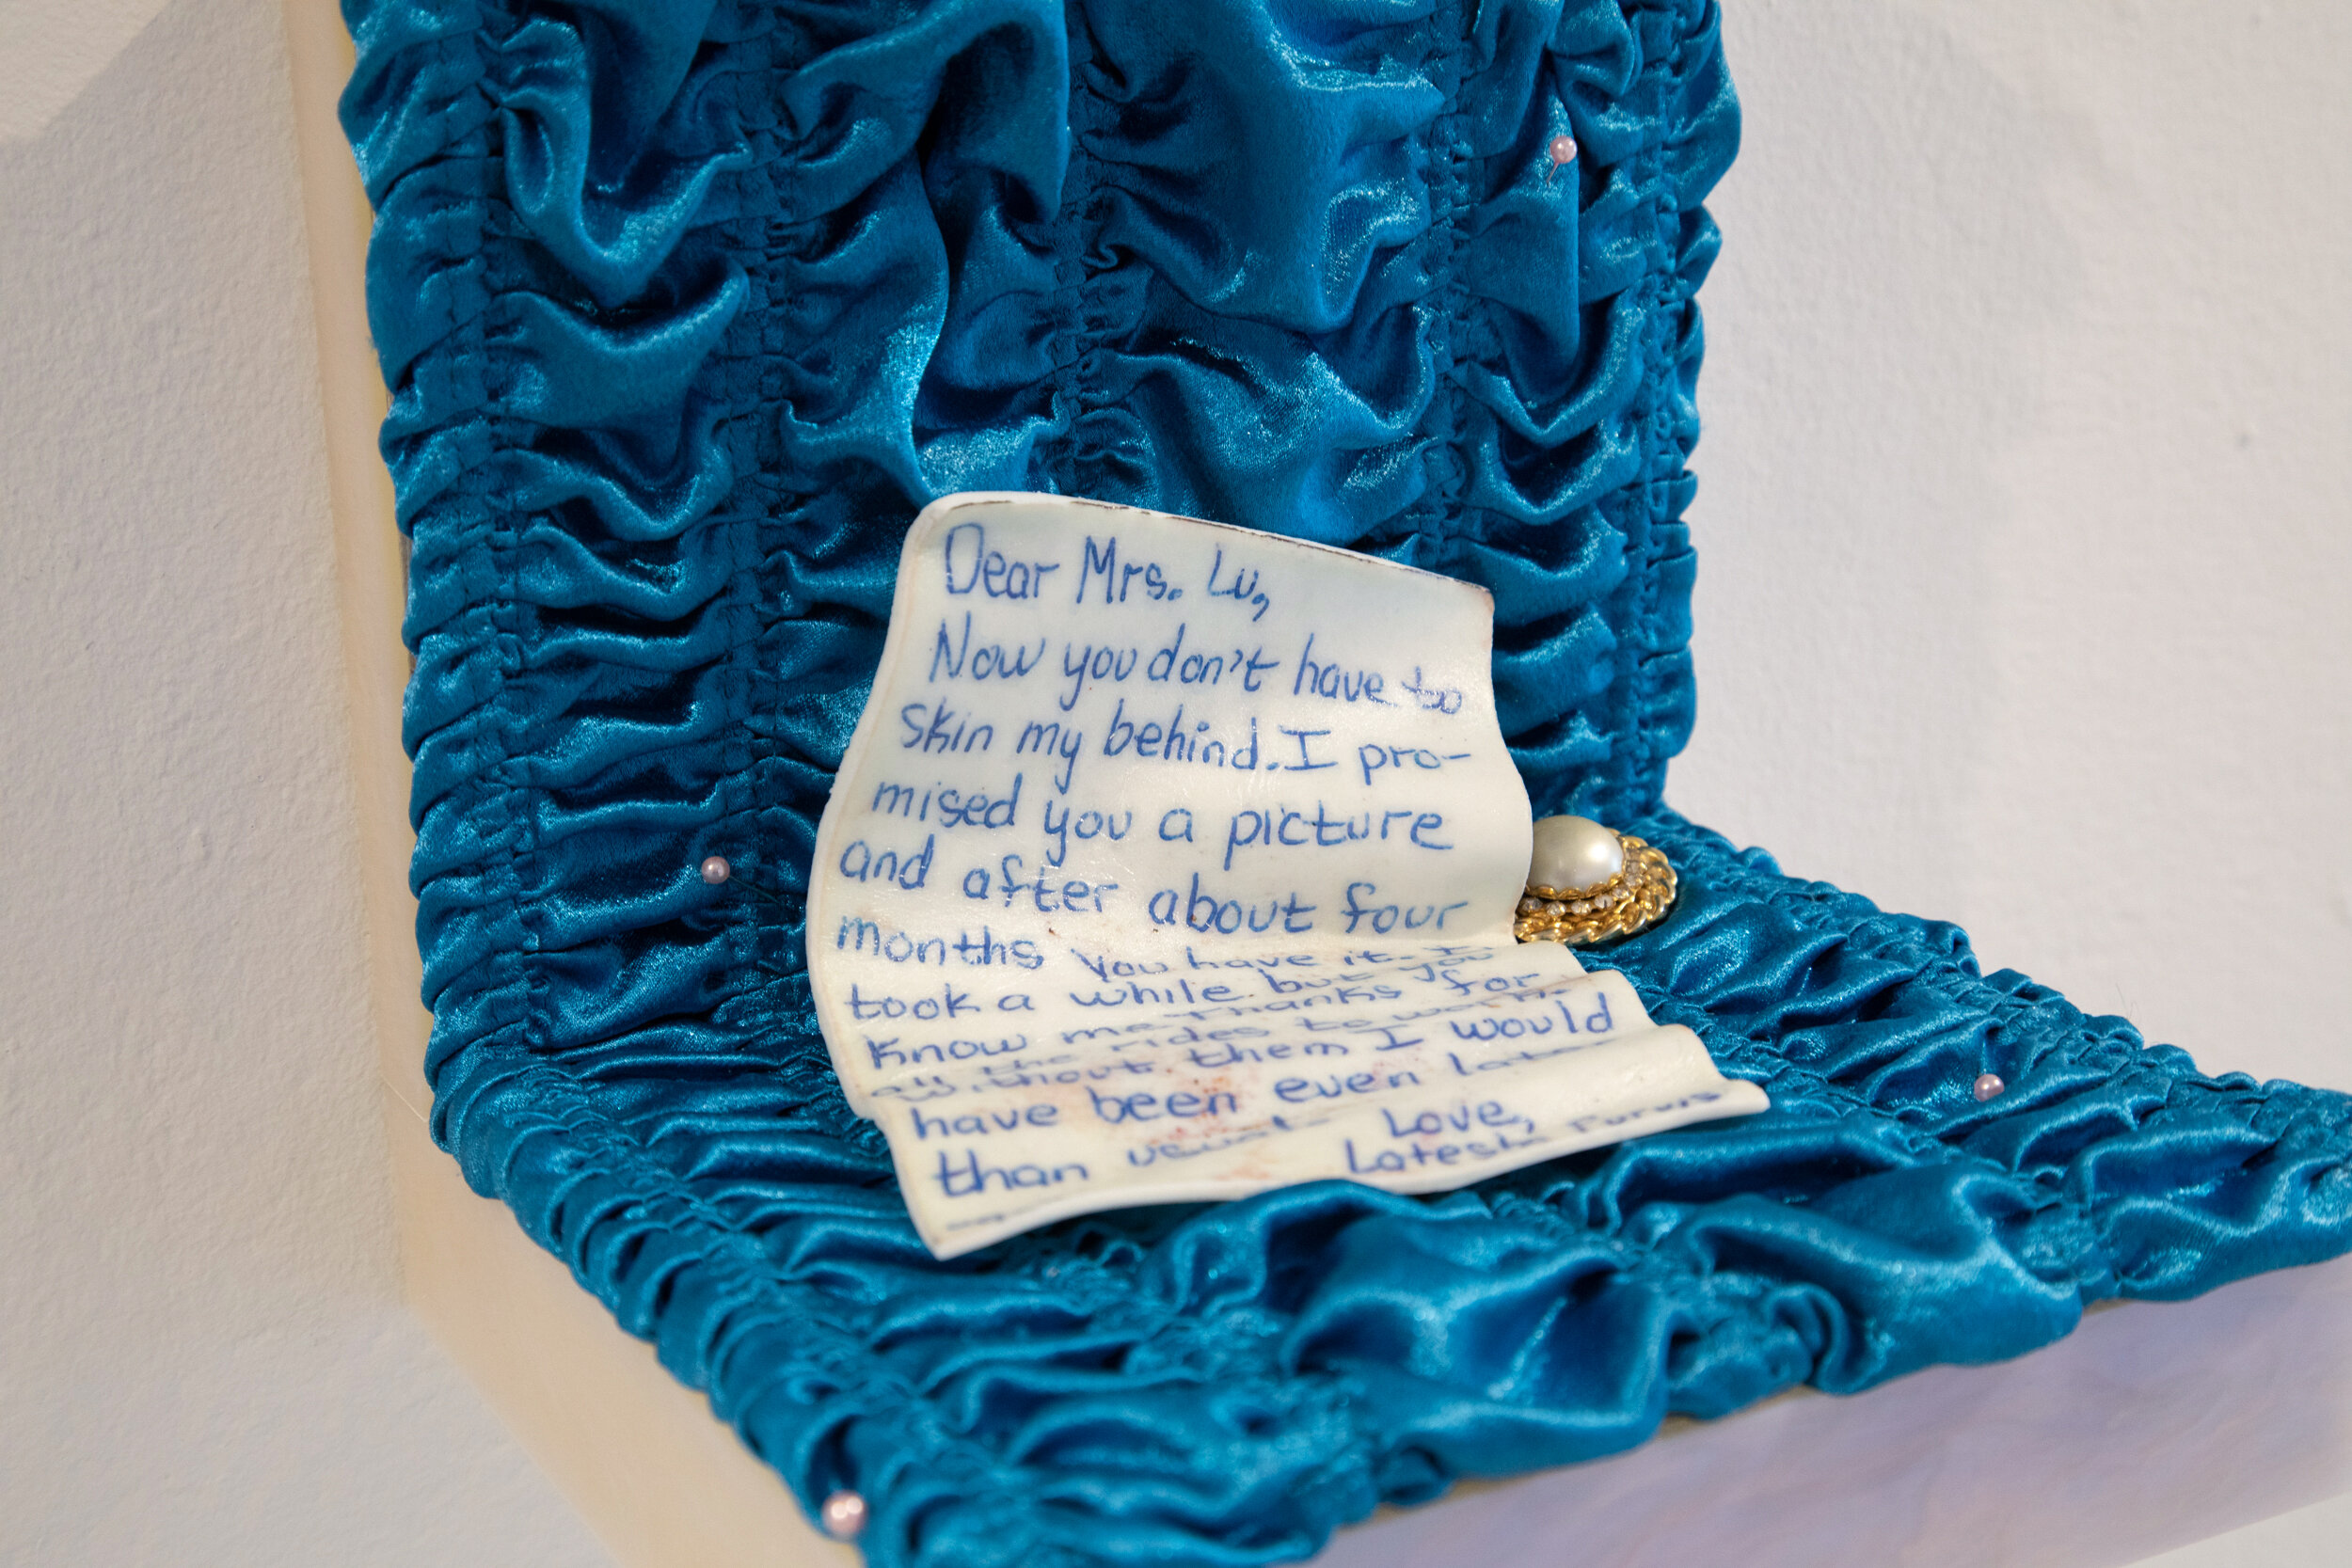 Dear Mrs. Lu,
Now you don't have to
skin my behind. I pro-
mised you a picture
and after about four
months you have it. It
took a while but you
know me thanks for
all the rides to
without them I would
have been even later
than usual. Love,
Latesh